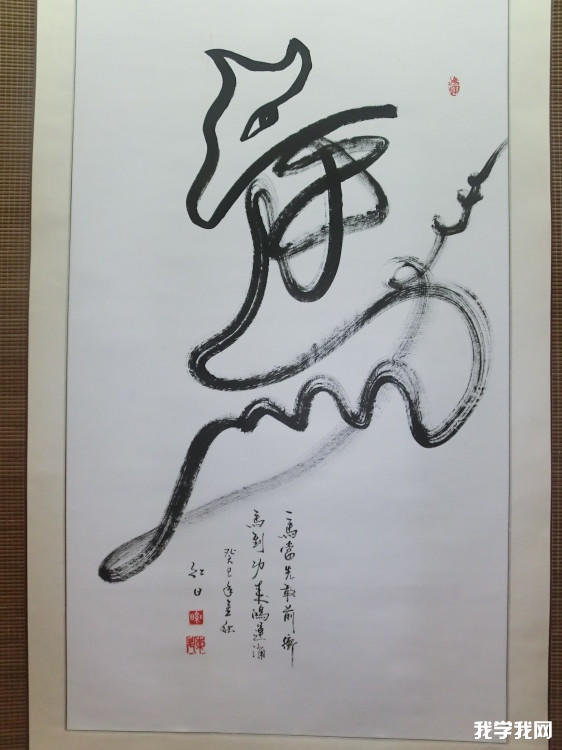 一馬當先敢前衝
馬到功成鴻運滿
癸巳年立秋
红日
我学我网